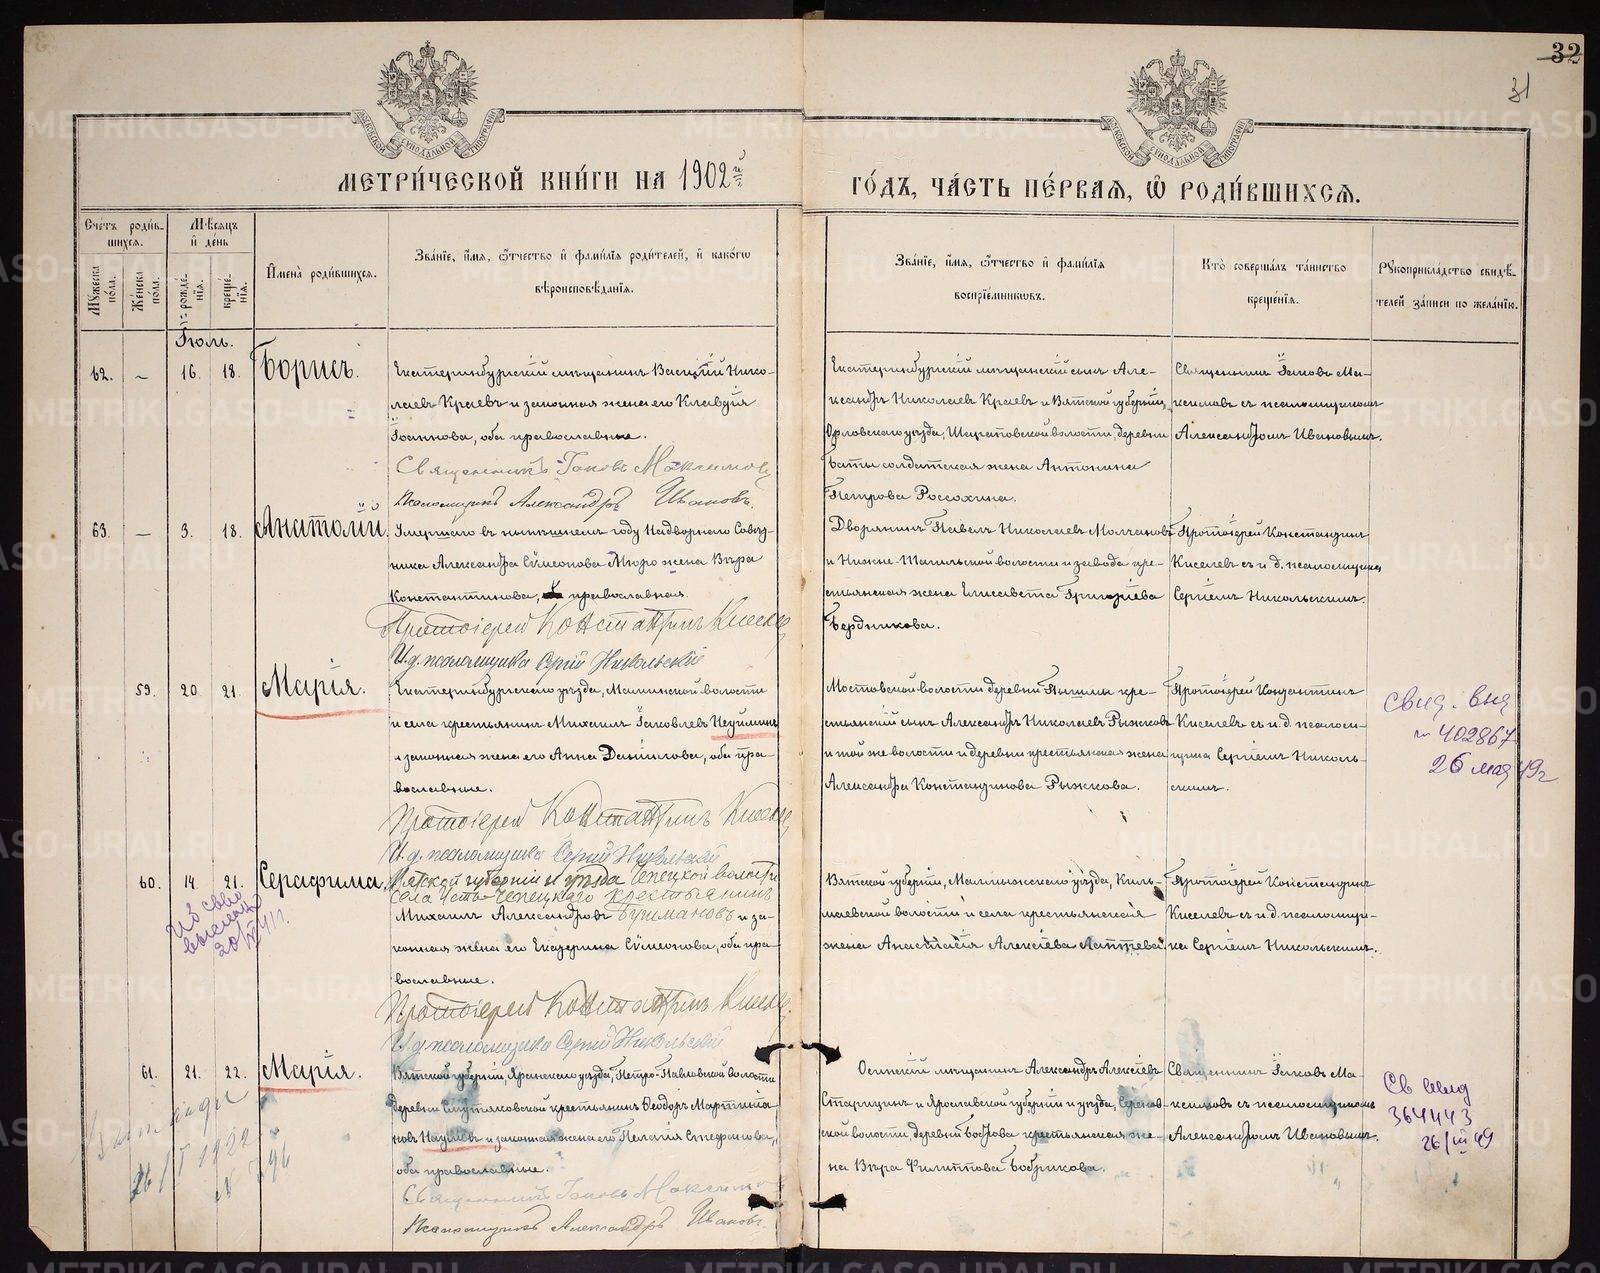 32
31
МЕТРИ́ЧЕСКОЙ КНИ́ГИ НА 1902й
ГО́ДЪ, ЧА́СТЬ ПЕ́РВАѦ, Ѡ҆ РОДИ́ВШИХСѦ.
Сче́тъ роди́в-
шихсѧ.
Мѣ́сѧцъ
и҆ де́нь
И҆мена̀ роди́вшихсѧ.
Зва́нїе, и҆́мѧ, ѻ҆́тчество и҆ фамѝлїѧ роди́телей, и҆ како́гѡ
вѣроисповѣ́данїѧ.
Зва́нїе, и҆́мѧ, ѻ҆́тчество и҆ фами́лїѧ
воспрїе́мникѡвъ.
Кто̀ соверша́лъ та́инство
креще́нїѧ.
Рꙋкоприкла́дство свидѣ́-
телей за́писи по жела́нїю.
Мꙋ́жеска по́ла.
Же́нска по́ла.
рожде́нїѧ.
креще́нїѧ.
Іюль.
62. — 16. 18. Борисъ.
Екатеринбургскій мѣщанинъ Василій Нико-
лаевъ Краевъ и законная жена его Клавдія
Іоаннова, оба православные.
Священникъ Іаковъ Максимовъ
Псаломщикъ Александръ Ивановъ.
Екатеринбургскій мѣщанскій сынъ Але-
ксандръ Николаевъ Краевъ и Вятской губерніи,
Орловскаго уѣзда, Шаратовской волости, деревни
Баты солдатская жена Антонина
Петрова Россохина.
Священникъ Іаковъ Ма-
ксимовъ съ псаломщикомъ
Александромъ Ивановымъ.
63. — 3. 18. Анатолій.
Умершаго въ нынѣшнемъ году Надворнаго Совѣт-
ника Александра Сѵмеонова Мюро жена Вѣра
Константинова, православная.
Протоіерей Константинъ Киселевъ
И. д. псаломщика Сергій Никольскій
Дворянинъ Павелъ Николаевъ Молчановъ
и Нижне-Тагильской волости и завода кре-
стьянская жена Елисавета Григоріева
Бердникова.
Протоіерей Константинъ
Киселевъ съ и. д. псаломщика
Сергіемъ Никольскимъ.
59. 20 21. Марія.
Екатеринбургскаго уѣзда, Маминской волости
и села крестьянинъ Михаилъ Іаковлевъ Неуйминъ
и законная жена его Анна Даніилова, оба пра-
вославные.
Протоіерей Константинъ Киселевъ
И. д. псаломщика Сергій Никольскій
Мостовской волости деревни Пышмы кре-
стьянскій сынъ Александръ Николаевъ Рыжковъ
и той же волости и деревни крестьянская жена
Александра Константинова Рыжкова.
Протоіерей Константинъ
Киселевъ съ и. д. псалом-
щика Сергіемъ Николь-
скимъ.
свид. выд
402867
26 мая 49г
60. 14. 21. Серафима.
Вятской губерніи и уѣзда Чепецкой волости
села Усть-Чепецкаго крестьянинъ
Михаилъ Александровъ Бушмановъ и за-
конная жена его Екатерина Сѵмеонова, оба пра-
вославные.
Протоіерей Константинъ Киселевъ
И. д. псаломщика Сергій Никольскій
Вятской губерніи, Малмыжскаго уѣзда, Киль-
мезской волости и села крестьянская
жена Анастасія Алексіева Лаптева.
Протоіерей Константинъ
Киселевъ съ и. д. псаломщи-
ка Сергіемъ Никольскимъ.
61. 21. 22. Марія.
Вятской губерніи, Яранскаго уѣзда, Петро-Павловской волости
деревни крестьянинъ Ѳеодоръ Мартиніа-
новъ Наумовъ и законная жена его Пелагія Стефанова,
оба православные.
Священникъ Іаковъ Максимовъ
Псаломщикъ Александръ Ивановъ.
Осинскій мѣщанинъ Александръ Алексіевъ
Старицинъ и Ярославской губерніи и уѣзда,
ской волости, деревни Боброва крестьянская же-
на Вѣра Филиппова Бобрикова.
Священникъ Іаковъ Ма-
ксимовъ съ псаломщикомъ
Александромъ Ивановымъ.
Св выд
364443
26/III 49
26/I 1922
METRIKI.GASO-URAL.RU